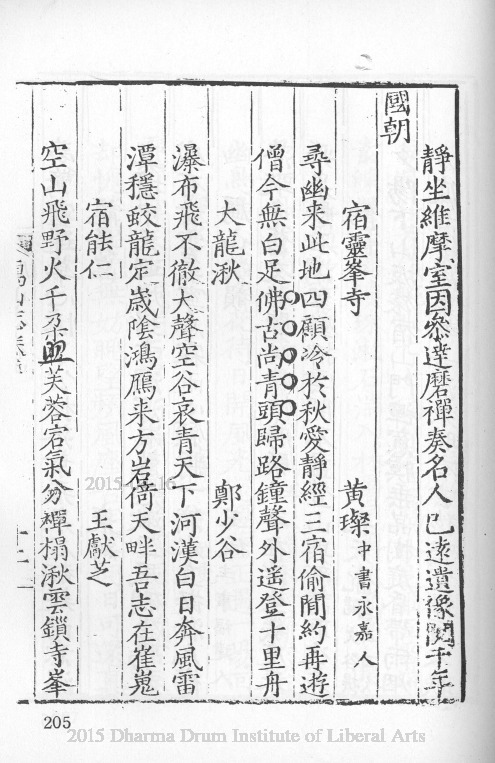 靜坐維摩室因參達磨禪奏名人已遠遺像閱千年
國朝
宿靈峯寺 黃璨中書永嘉人
尋幽来此地四顧冷於秋愛靜經三宿偷閒約再遊
僧今無白足佛古尚青頭歸路鐘聲外遥登十里舟
大龍湫 鄭少谷
瀑布飛不徹大聲空谷哀青天下河漢白日奔風雷
潭穩蛟龍定歲陰鴻鴈来方岩倚天畔吾志在崔嵬
宿能仁 王獻芝
空山飛野火千朶芙蓉宕氣分禪榻湫雲鎖寺峯
十二
205
2015-04-16
2015 Dharma Drum Institute of Liberal Arts